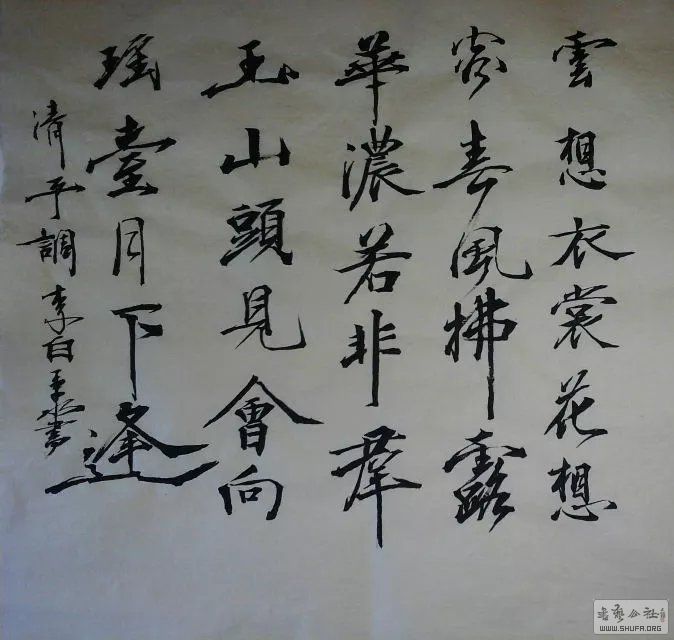 雲想衣裳花想
容春風拂露
華濃若非羣
玉山頭見會向
瑶臺月下逢
清平調李白書
书艺公社
WWW.SHUFA.ORG